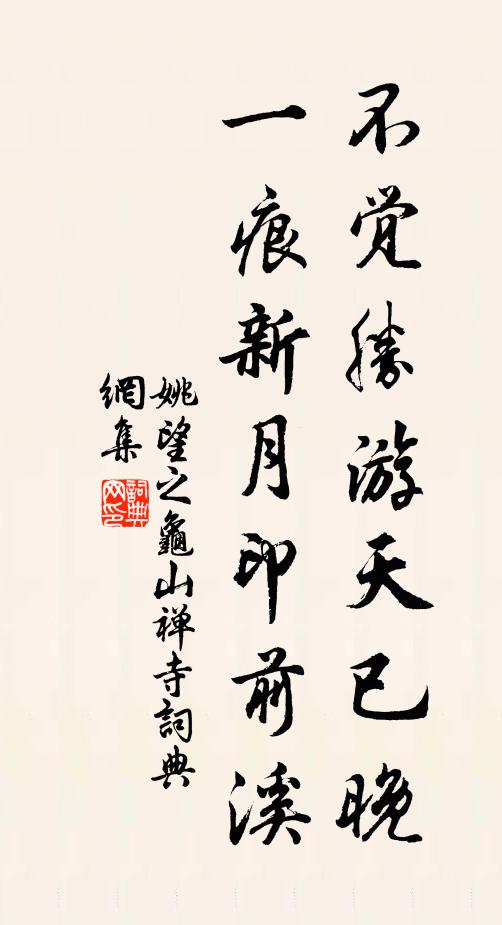 不觉勝游天已晚
一痕新月印前溪
姚望之龜山禅寺詞典
網集
詞典
网印